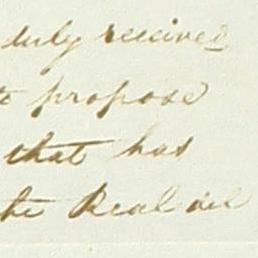 duly received
to propose
that has
the Real oil